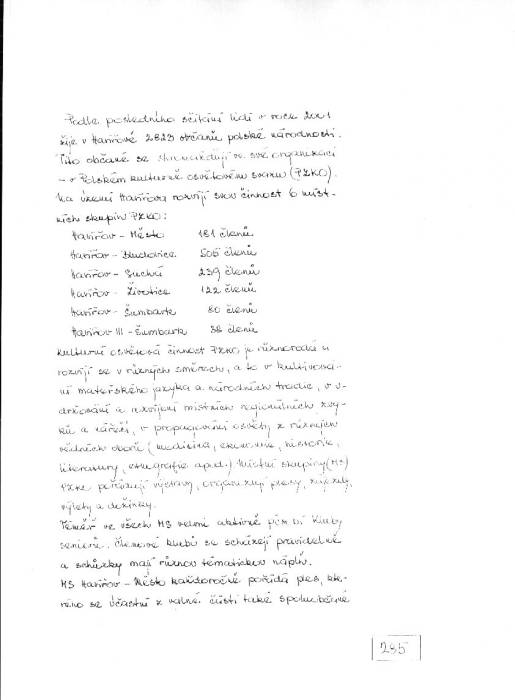 Podle posledního sčítání lidí v roce 2001
žije v Havířově 2823 občanů polské národnosti.
Tito občané se shromažďují ve své organizaci
- v Polském kulturně osvětovém svazu (PZKO).
Na území Havířova rozvíjí svou činnost 6 míst-
ních skupin PZKO:
Havířov - Město 181 členů
Havířov - Bludovice 505 členů
Havířov - Suchá 239 členů
Havířov - Životice 122 členů
Havířov - Šumbark 80 členů
Havířov III - Šumbark 38 členů
Kulturní osvětová činnost PZKO je různorodá a
rozvíjí se v různých směrech, a to v kultivová-
ní mateřského jazyka a národních tradic, v u-
držování a rozvíjení místních regionálních zvy-
ků a nářečí, v propagování osvěty z různých
vědních oborů (medicína, ekonomie, historie,
literatury, etnografie apod.) Místní skupiny (MS)
PZKO pořádají výstavy, organizují plesy, zájezdy,
výlety a dožínky.
Téměř ve všech MS velmi aktivně působí kluby
seniorů. Členové klubů se scházejí pravidelně
a schůzky mají různou tématickou náplň.
MS Havířov - Město každoročně pořádá ples, kte-
rého se účastní z valné části také spoluobčané
285